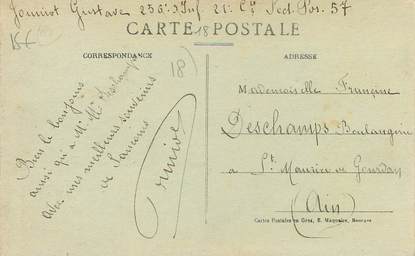 Jouniot Gustave 256e Inf 21e Cie Sect. Pos. 57
15€
18
CARTE POSTALE
CORRESPONDANCE
ADRESSE
18)
Bien le bonjour
ainsi qu'à M. Mme Deschamps
avec mes meilleurs souvenirs
de
Mademoiselle Francine
Deschamps Boulangerie
à St. Maurice de Gourdans
(Ain)
Cartes Postales en Gros, E. Maquaire, Bourges